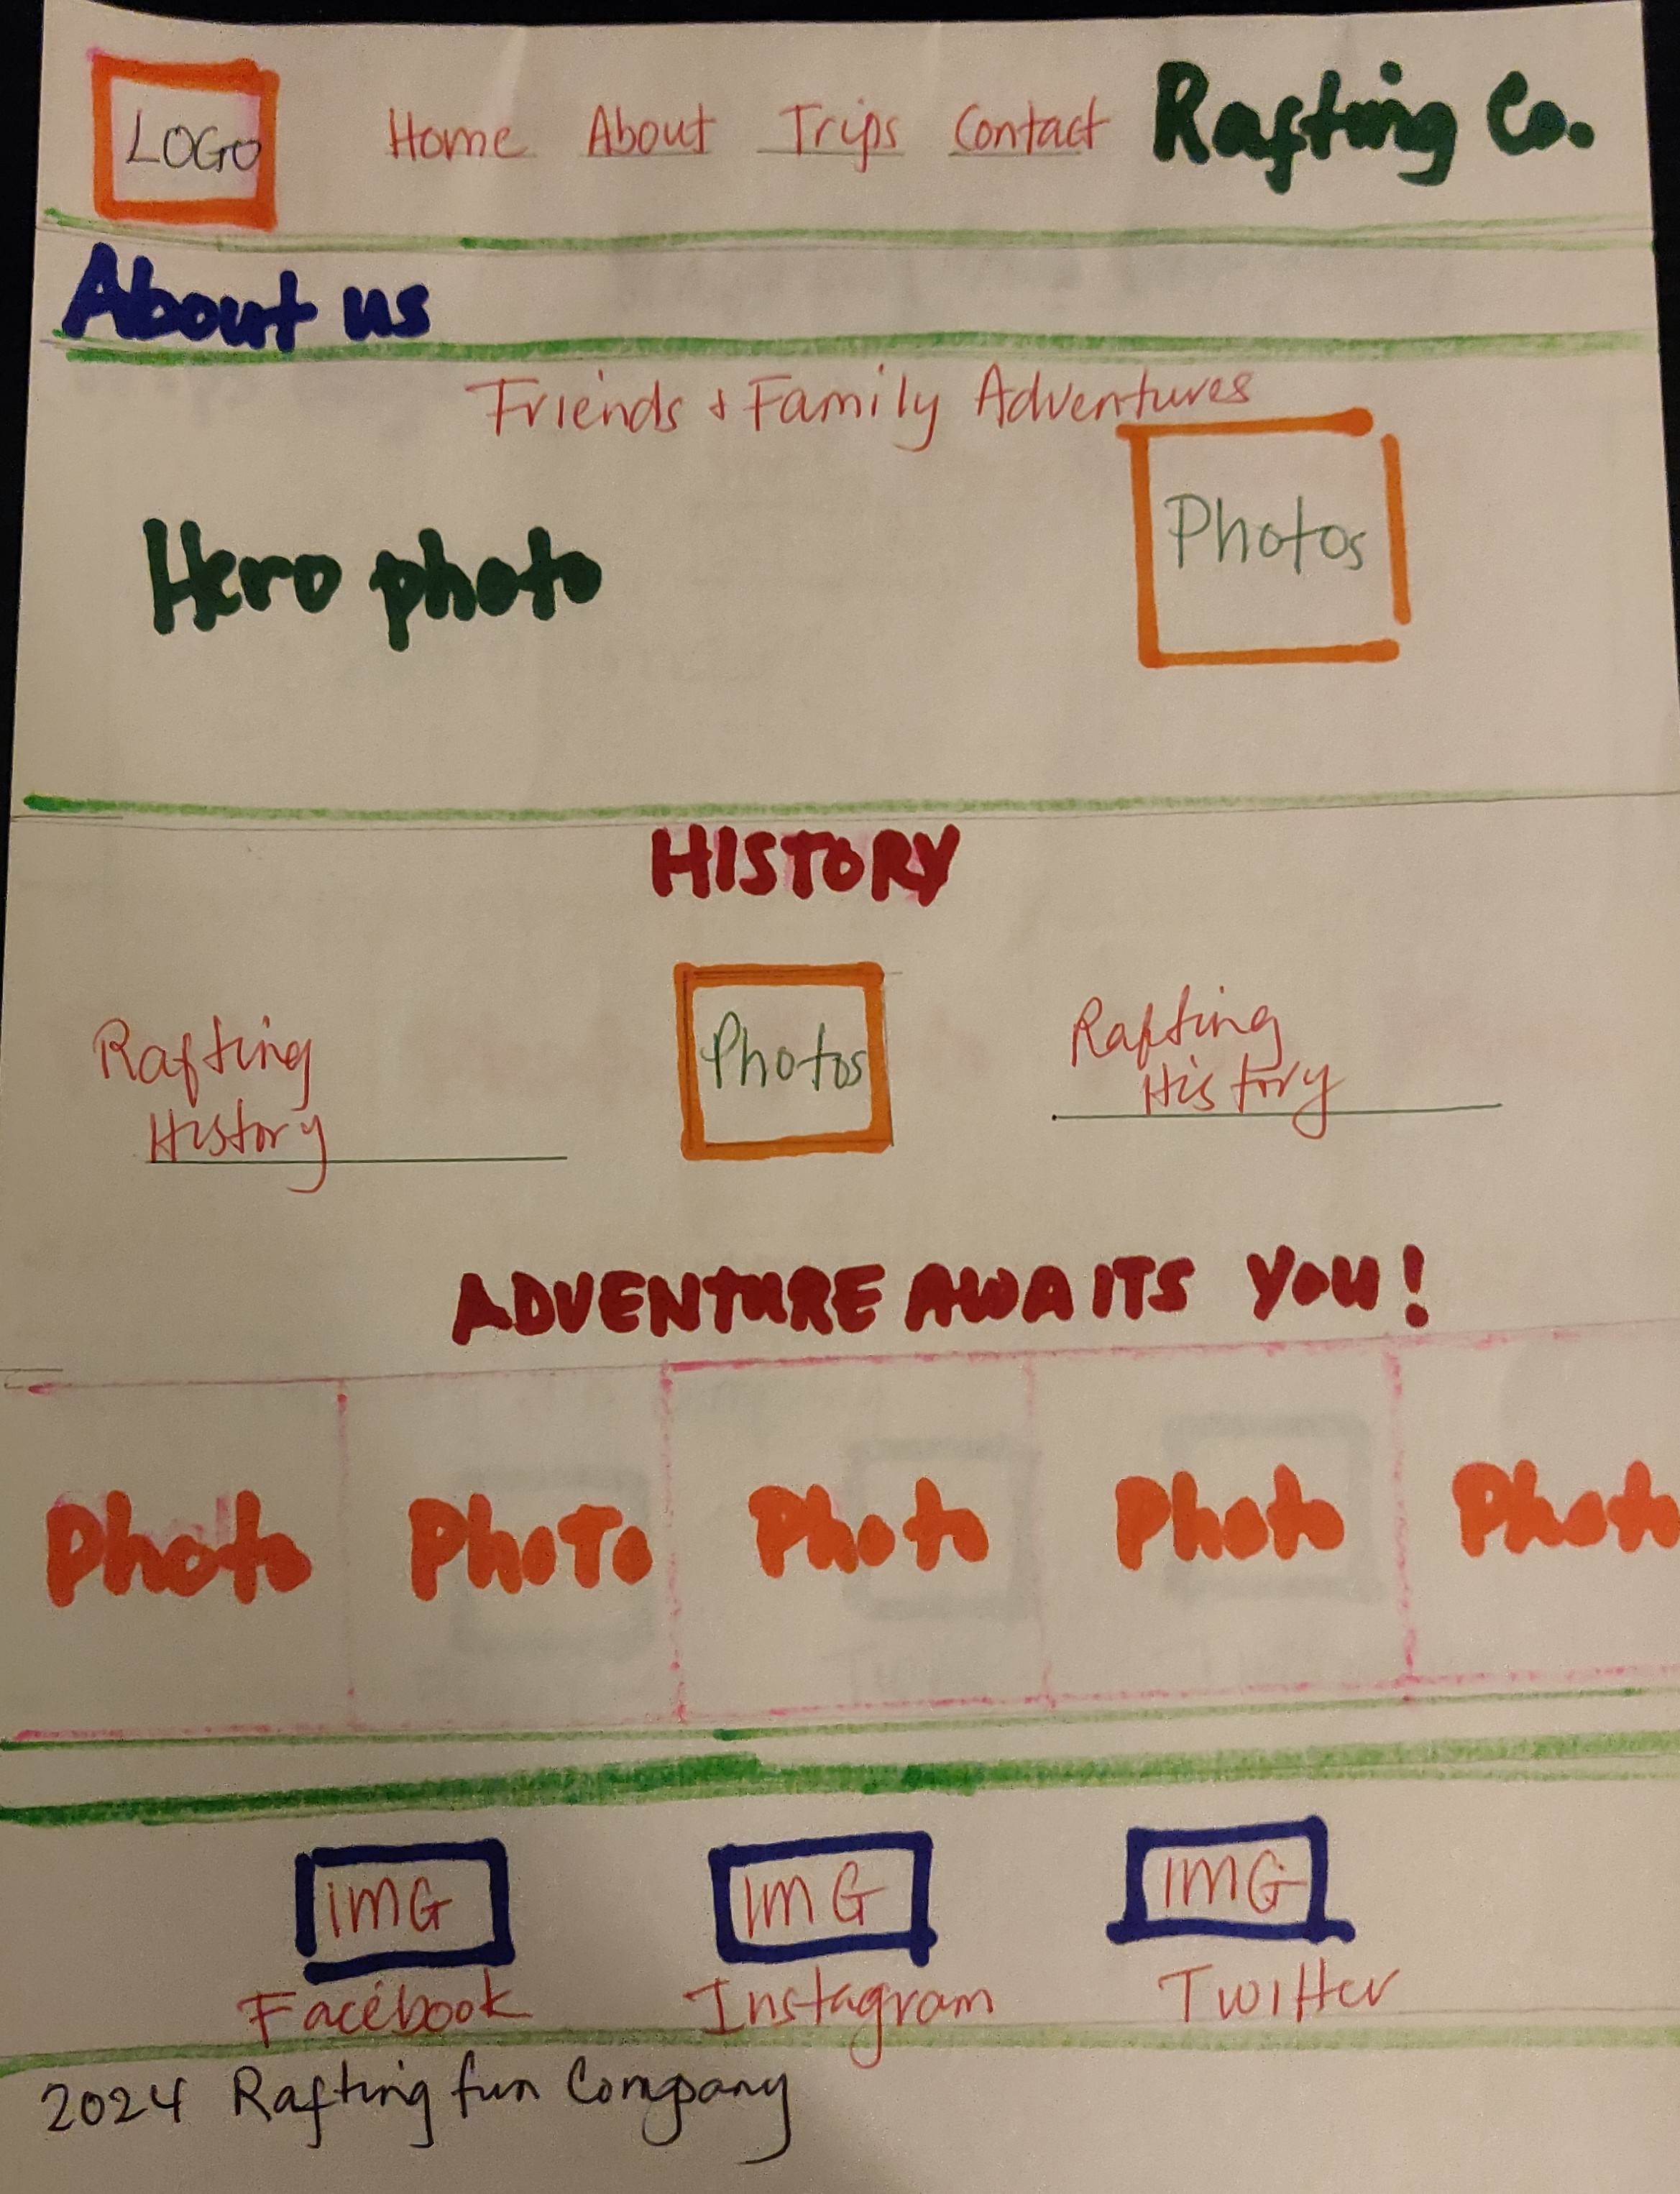 LOGO Home About Trips Contact Rafting Co.
About us
Friends + Family Adventures
Hero photo
Photos
HISTORY
Rafting
History
Photos
Rafting
History
ADVENTURE AWAITS YOU!
Photo PhoTo Photo Photo Photo
IMG IMG IMG
Facebook Instagram Twitter
2024 Rafting fun Company